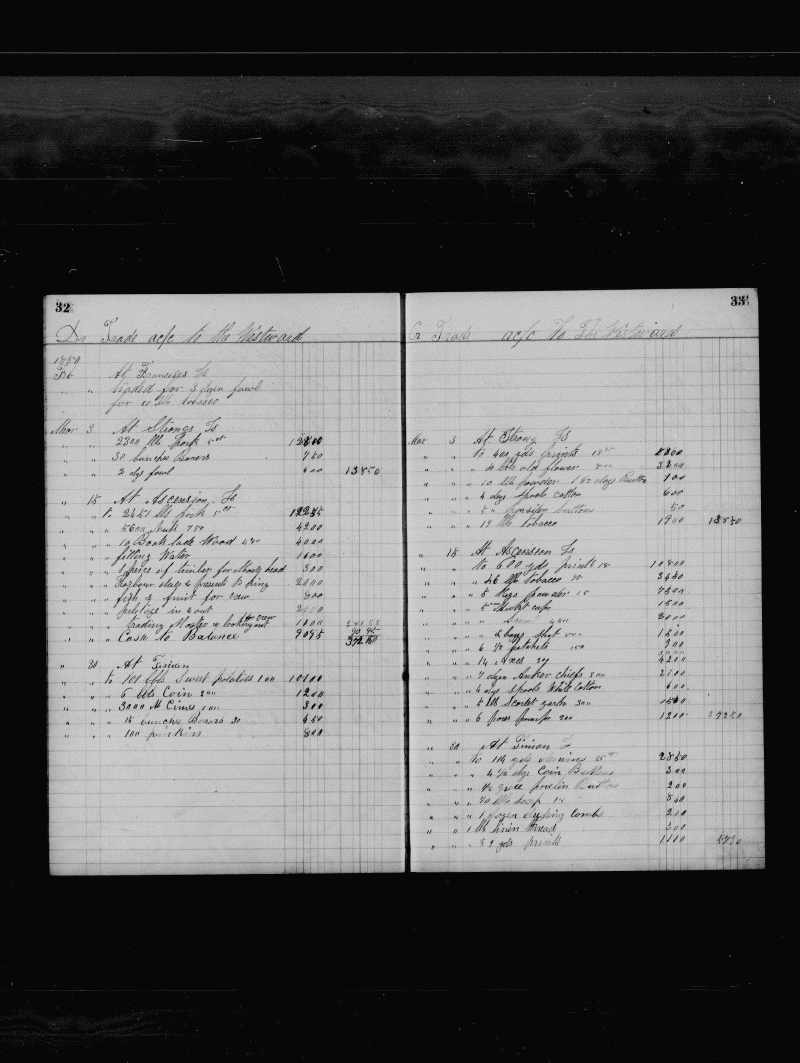 32
Dr Trade a/c to the Westward
1889
Feb At Francizes Is
" " traded for 3 dozen fowl
for 10 lbs tobacco
Mar 3 At Strongs Is
" " 2300 lbs pork 5 cts 12800
" " 30 bunches Boxers 750
" " 2 dz fowl 600 13850
" 15 At Ascension Is
" " to 2451 lbs pork 5 cts 12255
" " " 5600 Nuts 750 4200
" " " 10 Boats lade Wood 400 4000
" " " filling Water 1000
" " " 1 piece of timber for Mast head 300
" " " Harbour dues & present to King 2000
" " " fish & fruit for crew 800
" " " pilotage in & out 2000
" " " trading Master & looking out for Crew 1000 28155
" " " Cash to Balance 9095 90 95
37250
" 30 At Tinian
" " to 101 bbls Sweet potatoes 100 10100
" " " 6 bbls Corn 200 1200
" " " 3000 M Limes 100 300
" " " 15 bunches Boxers 30 450
" " " 100 punkins 800
33
Cr Trade a/c To The Westward
Mar 3 At Strong Is
" " to 400 yds prints 18 8800
" " " bbls old flower 800 3200
" " " 10 lbs powder 1 1/2 dozs Button 900
" " " 4 dzs Spools cotton 600
" " " 5 " porslin buttons 50
" " " 19 lbs tobacco 1900 13850
" 15 At Ascension Is
" " to 600 yds prints 18 10800
" " " 46 lbs tobacco 3450
" " " 5 Kegs powder 15 7500
" " " 5 Muskt caps 1500
" " " 400 2000
" " " 2 bags Shot 1500
" " " 6 1/2 hatchets 150 900
" " " 14 Axes 300 4200
" " " 7 dozen Anker chiefs 300 2100
" " " 4 dzs Spools White Cotton 600
" " " 5 lbs Scarlet yarbs 300 1500
" " " 6 200 1200 37250
" 30 At Tinian Is
" " to 114 yds 25 2850
" " " 4 1/2 dzs Coin Buttons 300
" " " 1/2 porslin Buttons 200
" " " 70 lbs Soap 12 840
" " " 1 dozen Combs 200
" " " 1 lb linen thread 300
" " " yds prints 1100 5790